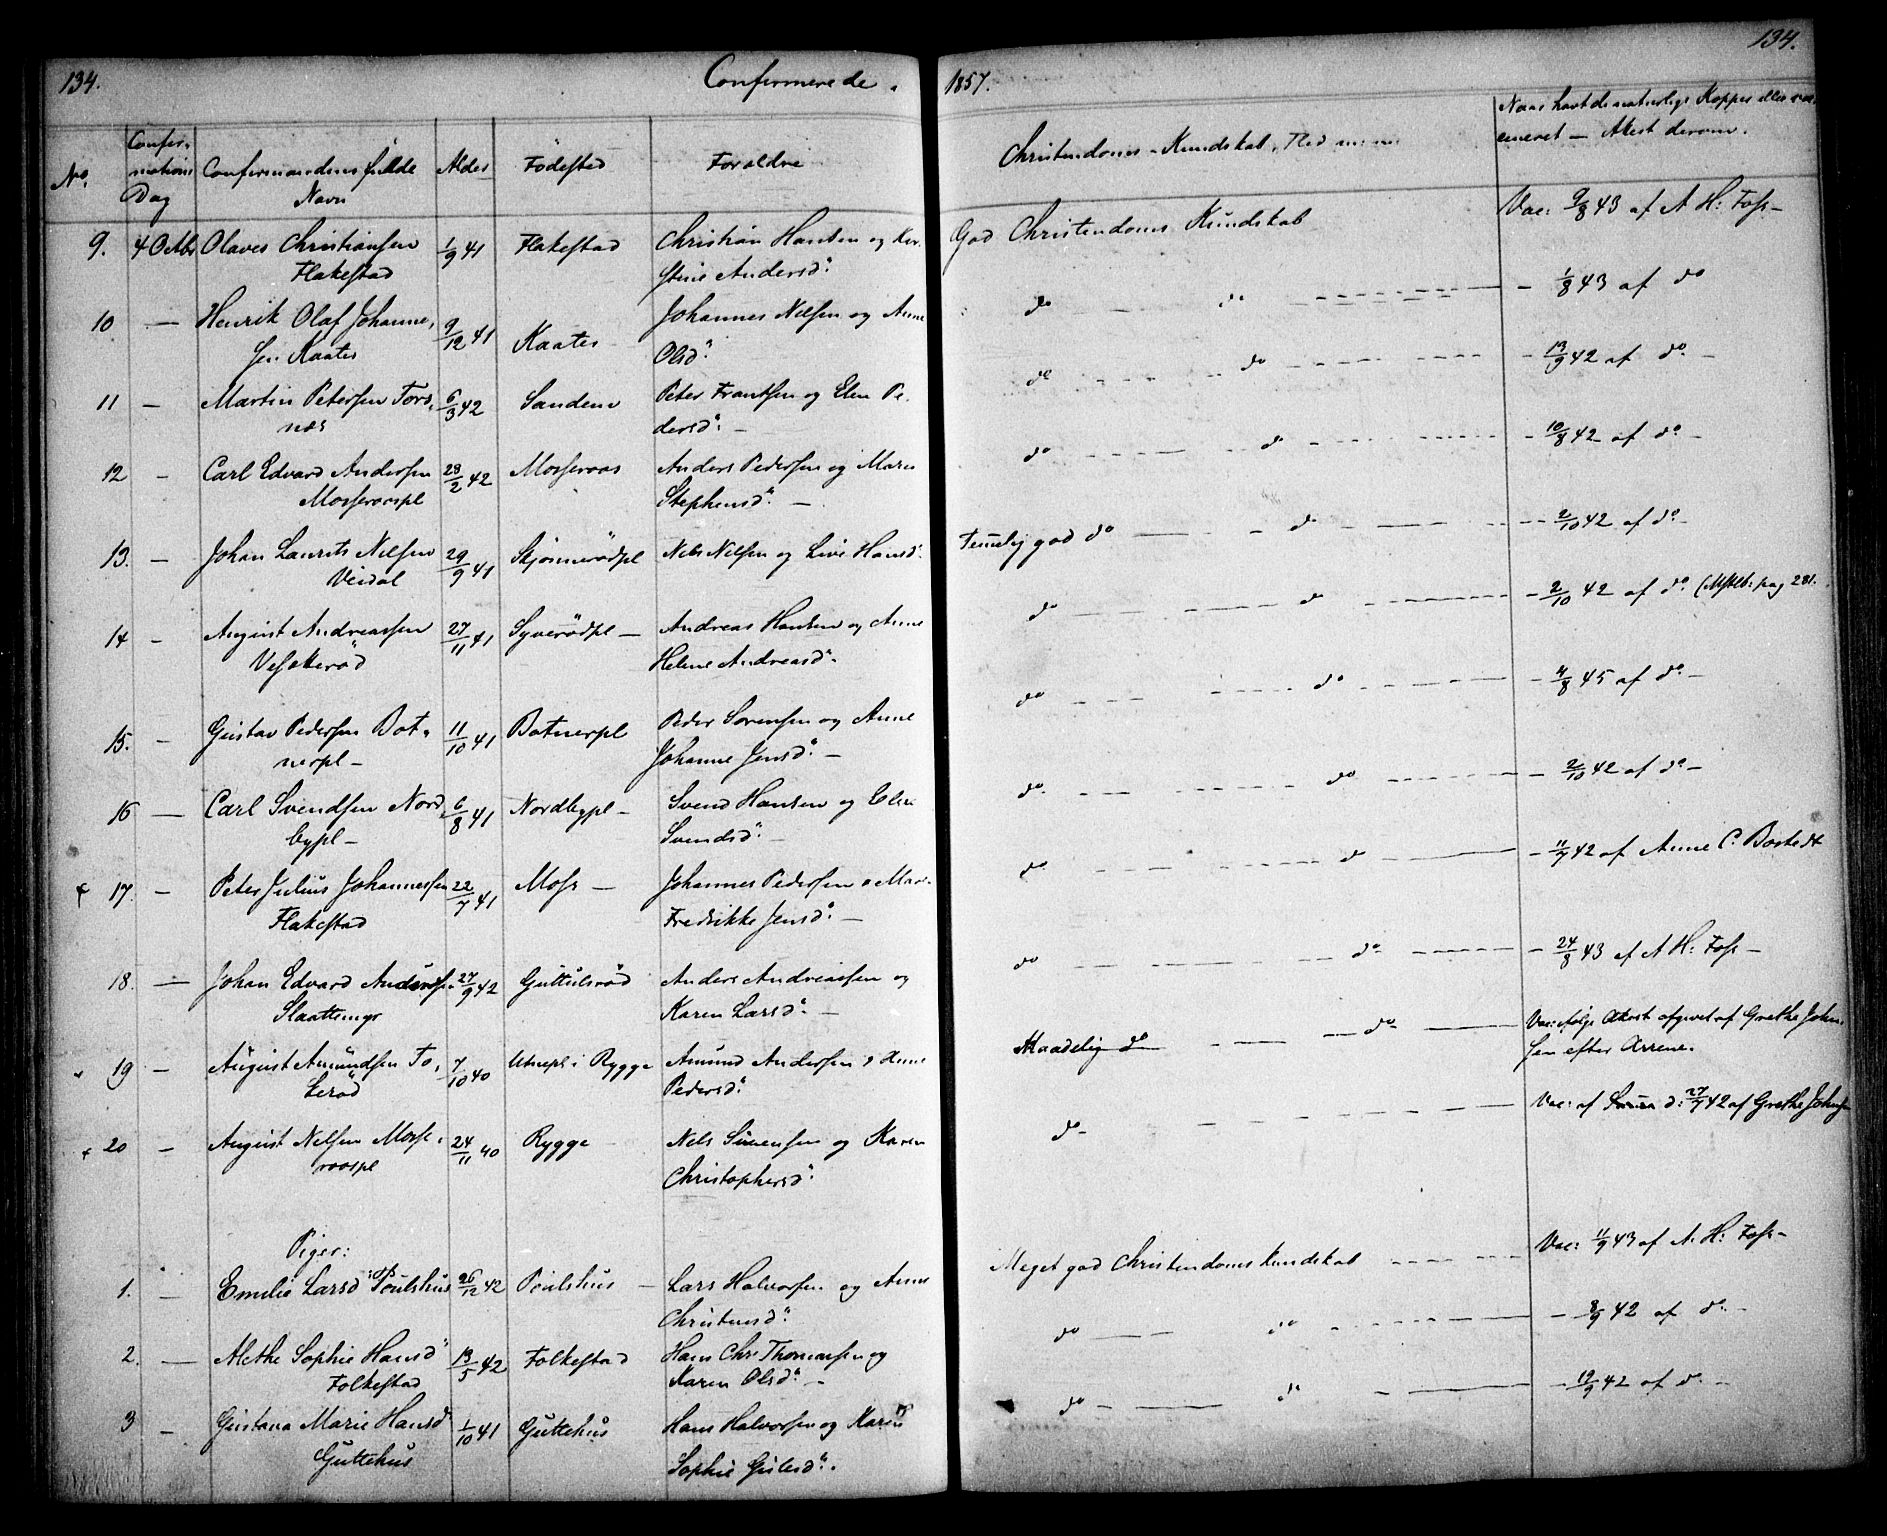 134.
Confirmerede.
1857.
134.
No.
Confir-
mations
Dag
Confirmandens fulde
Navn
Alder
Födestad
Foræld​re
Christendoms-Kundskab.
Naar havt de naturlige Kopper eller vac-
cineret — Attest derom.
9. 4 Octbr Olaves Christiansen
Flakestad
1/9 41
Flakestad
Christian Hansen og Ker-
stine Andersd:
God Christendoms Kundskab
Vac: 9/8 43 af A H: Foss —
10 — Henrik Olaf Johanne-
sen Kaater
9/12 41
Kaater
Johannes Nilsen og Anne
Olsd:
do do — 1/8 43 af do
11 — Martin Petersen Fors-
næs
6/3 42
Sanden
Peter Frantsen og Elen Pe-
dersd: —
do do — 13/9 42 af do —
12 — Carl Edvard Andersen
Mosserosspl
23/2 42
Mosseroos
Anders Pedersen og Maren
Stephensd: —
do do — 10/8 42 af do —
13. — Johan Laurits Nilsen
Veidal
29/9 41
Skjönnerödpl
Nels Nelsen og Live Hansd:
Temelig god do — do — 2/10 42 af do —
14 — August Andreassen
Vesskeröd
27/11 41
Syverödpl —
Andreas Hansen og Anne
Helene Andreasd:
do do — 2/10 42 af do (Mstlb: pag 231.
15. — Gustav Pedersen Bot-
nerpl —
11/10 41
Botnerpl
Peder Sorensen og Anne
Johanne Jensd: —
do do — 4/8 45 af do —
16 — Carl Svendsen Nord-
bypl —
6/8 41
Nordbypl —
Svend Hansen og Elen
Svendsd: —
do do — 2/10 42 af do —
17. — Peter Julius Johannessen
Flakestad
22/7 41
Moss —
Johannes Pedersen o Mar-
Fredrikke Jensd: —
do do — 11/7 42 af Anne C. Bostedt
18. — Johan Edvard Andersen
Slaattemyr
27/9 42
Guttulsröd
Anders Andreassen og
Karen Larsd: —
do do — 24/8 43 af A H: Foss —
19 — August Amundsen To-
seröd
7/10 40
Utnepl i Rygge
Amund Andersen o Anne
Pedersd:
Maadelig do — do — Vac: ifølge Attest afgivet af Grethe John-
sen efter Arrene.
20 — August Nelsen Mosse-
roospl
24/11 40
Rygge
Nels Simensen og Karen
Christophersd:
do — Vac: af d: 27/9 42 af Grethe Johnsen
Piger:
1. — Emilie Larsd: Poulshus
26/12 42
Poulshus —
Lars Halvorsen og Anne
Christensd:
Meget god Christendoms kundskab Vac: 11/9 43 af A. H: Foss —
2. — Alethe Sophie Hansd
Folkestad
13/5 42
Folkestad
Hans Chr: Thomassen og
Karen Olsd: —
do do — 8/9 42 af do —
3 — Gustava Marie Hansd
Guttehus
1/10 41
Guttehus
Hans Halvorsen og Karen
Sophie Gulesd:
do do — 19/9 42 af do —